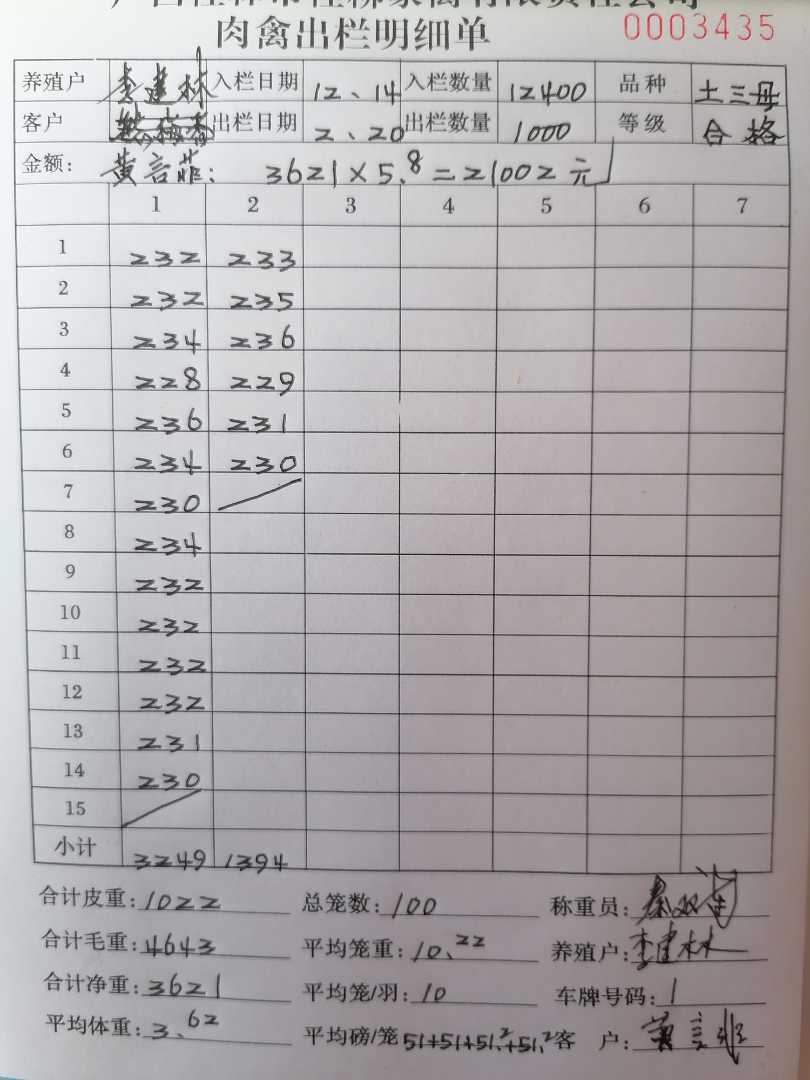 肉禽出栏明细单 0003435
养殖户 李建林 入栏日期 12、14 入栏数量 12400 品种 土三母
客户 出栏日期 2、20 出栏数量 1000 等级 合格
金额: 黄言菲: 3621×5.8=21002元
1 2 3 4 5 6 7
1 232 233
2 232 235
3 234 236
4 228 229
5 236 231
6 234 230
7 230
8 234
9 232
10 232
11 232
12 232
13 231
14 230
15
小计 3249 1394
合计皮重:1022 总笼数:100 称重员:秦双
合计毛重:4643 平均笼重:10.22 养殖户:李建林
合计净重:3621 平均笼/羽:10 车牌号码:1
平均体重:3.62 平均磅/笼 51+51+51.2+51.2 客 户:黄言